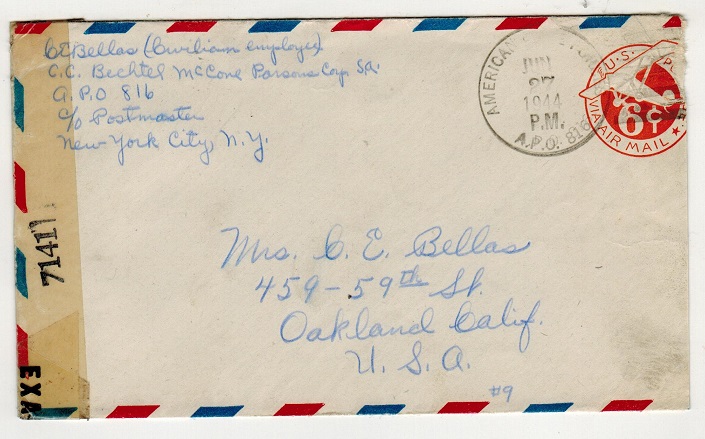 CE Bellas (Civiliam employe)
C.C. Bechtel McCone Parsons Corp. SR.
A.P.O 816
c/o Postmaster
New York City, N.Y.
AMERICAN
JUN
27
1944
P.M.
A.P.O. 816
U.S. PO
6¢
VIA AIR MAIL
71411
EXA
Mrs. C. E. Bellas
459-59th St.
Oakland Calif.
U.S.A.
#9